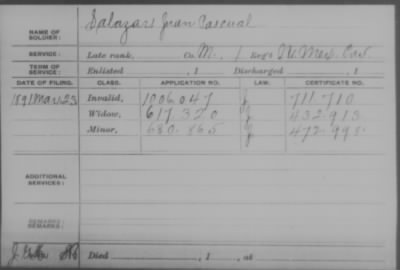 NAME OF SOLDIER: Salazar Juan Pascual
SERVICE: Late rank, Co. M, 1 Reg't N. Mex. Cav.
TERM OF SERVICE: Enlisted , 1 Discharged , 1
DATE OF FILING. CLASS. APPLICATION NO. LAW. CERTIFICATE NO.
1891 Mar 23 Invalid, 1006.047 J 711.710
Widow, 617.320 J 432.913
Minor, 680.865 J 472.995
ADDITIONAL SERVICES:
REMARKS:
Died , 1 , at